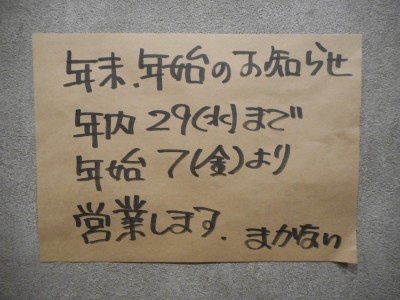 年末.年始のお知らせ
年内 29(水)まで
年始 7(金)より
営業します. まかない